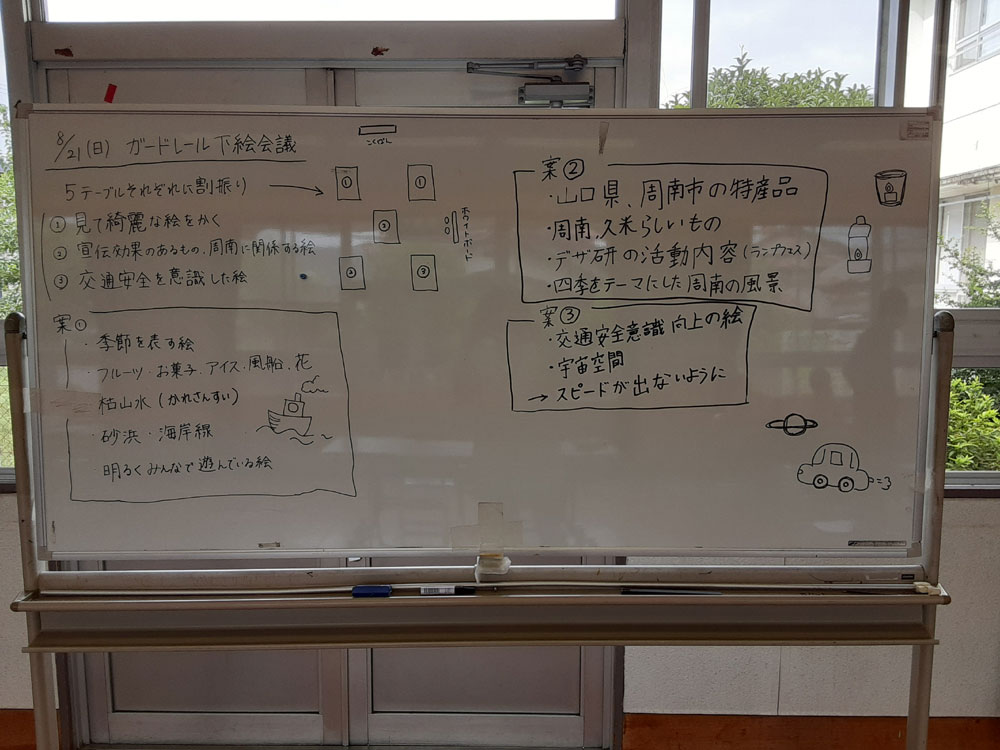 8/21(日) ガードレール下絵会議
5テーブルそれぞれに割振り
① 見て綺麗な絵をかく
② 宣伝効果のあるもの、周南に関係する絵
③ 交通安全を意識した絵
こくばん
① ①
②
ホワイトボード
案①
・季節を表す絵
・フルーツ・お菓子・アイス・風船、花
枯山水(かれさんすい)
・砂浜・海岸線
明るくみんなで遊んでいる絵
案②
・山口県、周南市の特産品
・周南、久米らしいもの
・デザ研の活動内容(ランプシェス)
・四季をテーマにした周南の風景
案③
・交通安全意識向上の絵
・宇宙空間
→ スピードが出ないように